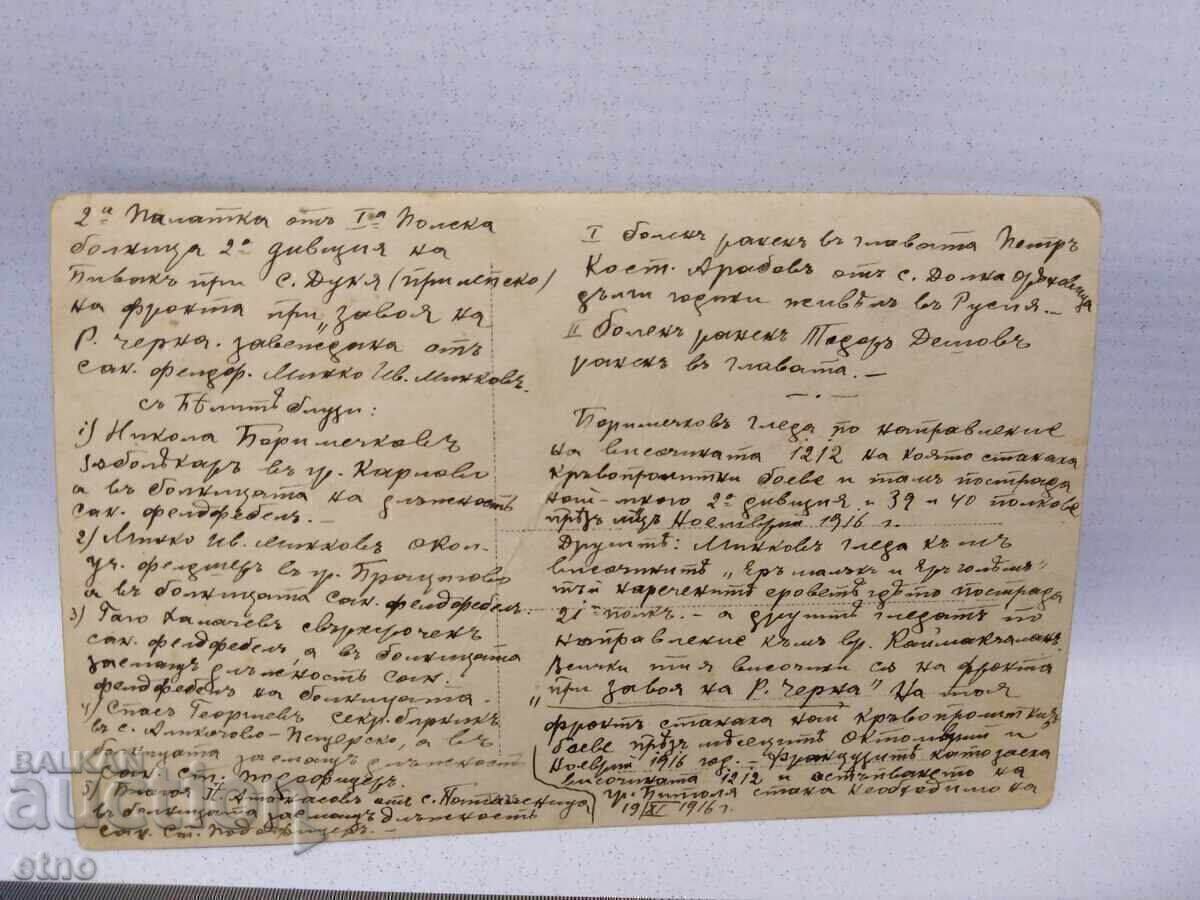 2а Палатка отъ Iа Полска
болница 2а дивизия на
Бивакъ при с. Дуня (прилѣпско)
на фронта при "завоя на
Р. Черна. завеждана отъ
сан. фелдф. Минко Ив. Минковъ.
съ Бѣлитѣ блузи:
1) Никола Боримечковъ
зѫболѣкаръ въ гр. Карлово
а въ болницата на длъжность
сан. фелдфебелъ. –
2) Минко Ив. Минковъ окол.
уч. фелдшеръ въ гр. Брацигово
а въ болницата сан. фелдфебелъ.
3) Гато Калачевъ свръхсроченъ
сан. фелдфебелъ, а въ болницата
заемащъ длъжность сан.
фелдфебелъ на болницата.
4) Спасъ Георгиевъ секр. бирникъ
въ с. Аликочово-Пещерско, а въ
болницата заемащъ длъжность
сан. ст. подофицеръ.
5) Атанасовъ отъ с.
въ болницата заемащъ длъжность
сан. ст. подофицеръ. –
I боленъ раненъ въ главата Петръ
Кост. Арабовъ отъ с. Долна Орѣховица
дълги години живѣлъ въ Русия. –
II Боленъ раненъ Тодоръ Дешовъ
раненъ въ главата. –
– . –
Боримечковъ гледа по направление
на височината 1212 на която станаха
кръвопролитни боеве и тамъ пострада
най-много 2а дивизия и 39 и 40 полкове
прѣзъ м-цъ Ноемврий 1916 г.
Другитѣ: Минковъ гледа къмъ
височинитѣ "Еръ малъкъ и Еръ голѣмъ"
тъй наречените еровете гдѣто пострада
21й полкъ. – а другитѣ гледатъ по
направление къмъ вр. Каймакчаланъ.
Всички тия височини сѫ на фронта
"при завоя на Р. Черна" На тоя
фронтъ станаха най кръвопролитнитѣ
боеве прѣзъ мѣсецитѣ Октомврий и
Ноемврий 1916 год. – Французитѣ като заеха
височината 1212 и остѫпването на
гр. Битоля стана необходимо на
19 XI 1916 г.
БАЛКАН
auction
etno